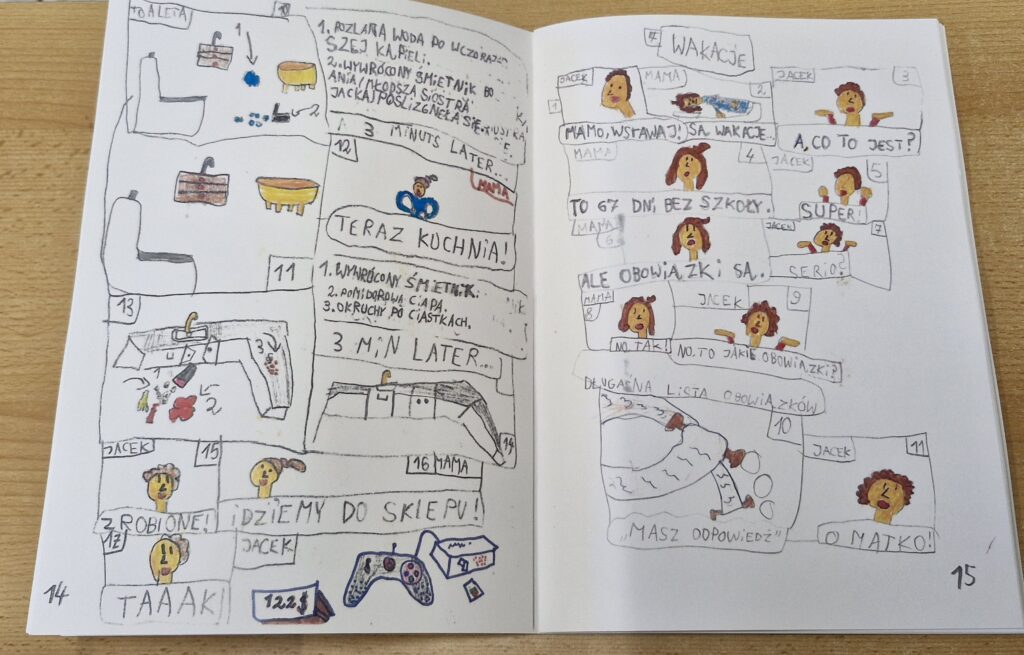 TOALETA
10
1
2
1. ROZLANA WODA PO WCZORAJ-
SZEJ KĄPIELI.
2. WYWRÓCONY ŚMIETNIK BO
MŁODSZA SIOSTRA
JACKA POŚLIZGNĘŁA SIĘ.
3 MINUTS LATER...
11
12
MAMA
TERAZ KUCHNIA!
13
1
2
3
1. WYWRÓCONY ŚMIETNIK.
2. POMIDOROWA CIAPA.
3. OKRUCHY PO CIASTKACH.
3 MIN LATER...
14
JACEK
15
ZROBIONE!
16 MAMA
IDZIEMY DO SKLEPU!
17
JACEK
TAAAK!
122$
14
WAKACJE
JACEK
1
MAMA
2
MAMO, WSTAWAJ! SĄ WAKACJE..
JACEK
3
A, CO TO JEST?
MAMA
4
TO 67 DNI BEZ SZKOŁY.
JACEK
5
SUPER!
MAMA
6
ALE OBOWIĄZKI SĄ..
JACEK
7
SERIO?
MAMA
8
NO, TAK!
JACEK
9
NO, TO JAKIE OBOWIĄZKI?
DŁUGAŚNA LISTA OBOWIĄZKÓW
10
„MASZ ODPOWIEDŹ”
JACEK
11
O MATKO!
15